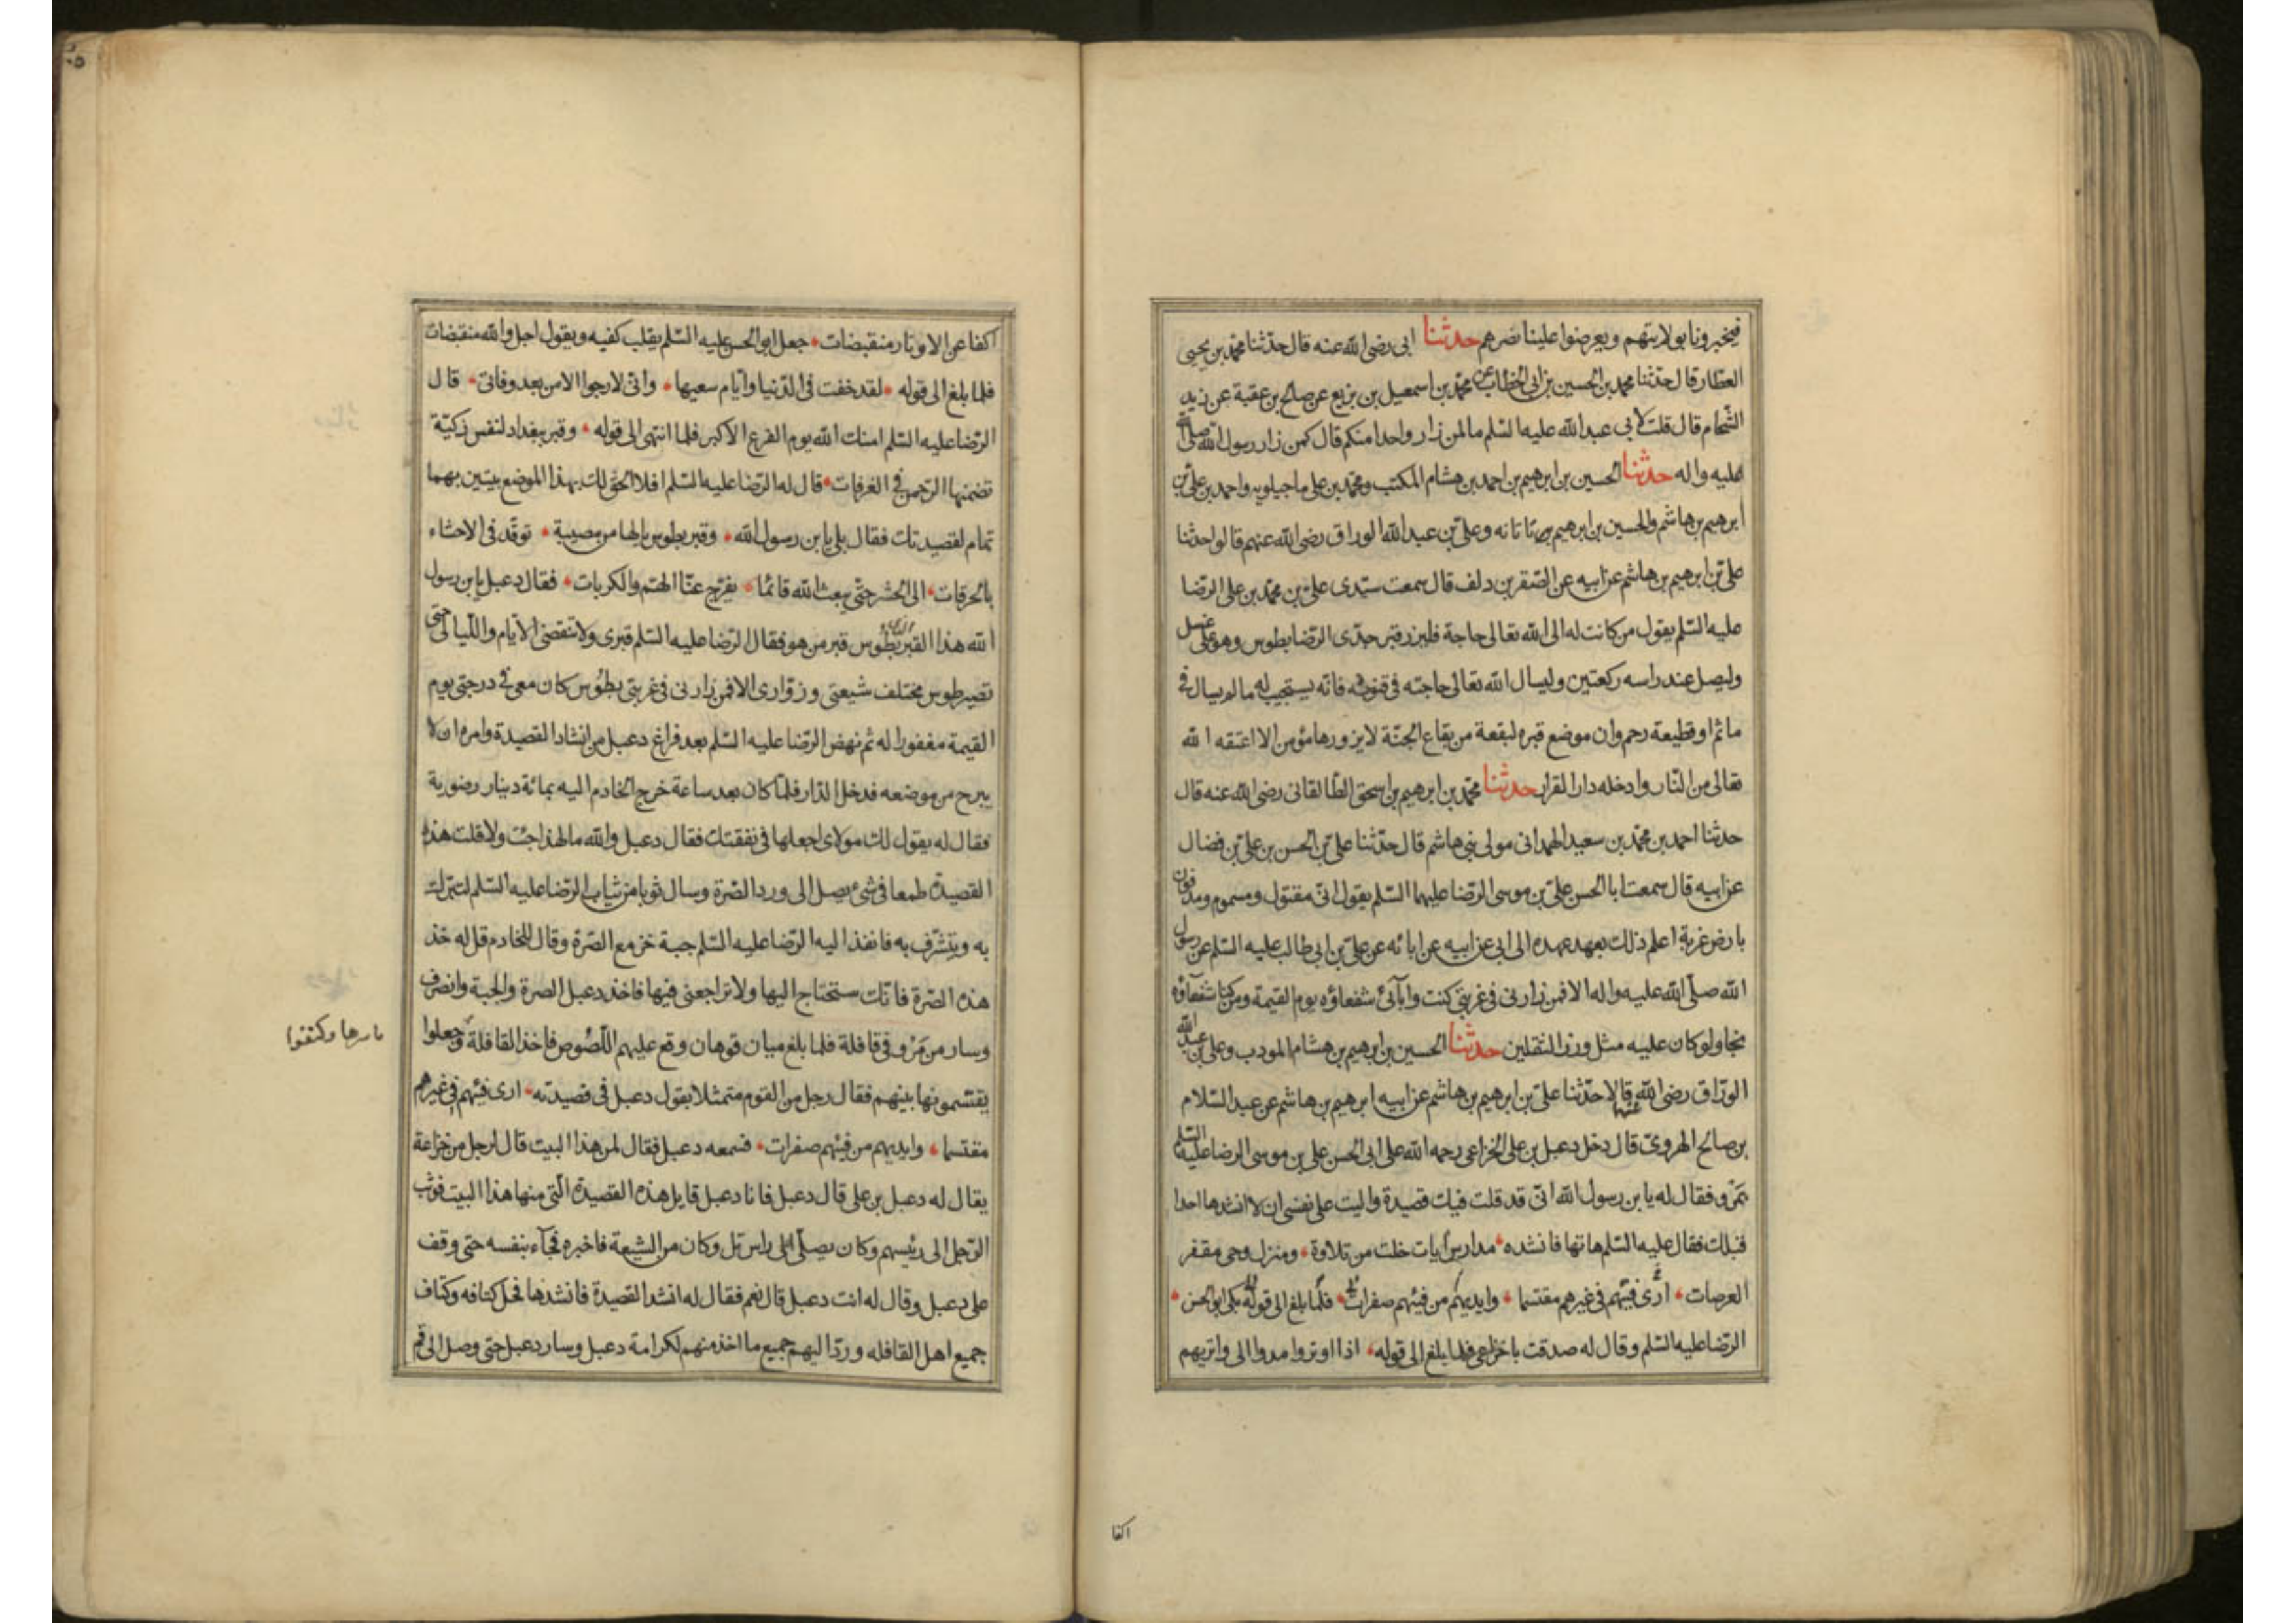 فيخبرونا بولايتهم ويعرضوا علينا نصرهم حدثنا ابى رضى الله عنه قال حدّثنا محمّد بن يحيى
العطّار قال حدّثنا محمد بن الحسين بن ابى الخطاب عن محمّد بن اسمعيل بن بزيع عن صالح بن عقبة عن زيد
الشّحام قال قلت لابى عبد الله عليه السّلم ما لمن زار واحدا منكم قال كمن زار رسول الله صلى الله
عليه واله حدثنا الحسين بن ابرهيم بن احمد بن هشام المكتب ومحمّد بن على ماجيلويه واحمد بن علىّ بن
ابرهيم بن هاشم والحسين بن ابرهيم بن تاتانه وعلىّ بن عبد الله الوراق رضى الله عنهم قالوا حدثنا
علىّ بن ابرهيم بن هاشم عن ابيه عن الصّقر بن دلف قال سمعت سيّدى علىّ بن محمّد بن على الرّضا
عليه السّلم يقول من كانت له الى الله تعالى حاجة فليزر قبر جدّى الرّضا بطوس وهو على غسل
وليصل عند راسه ركعتين وليسال الله تعالى حاجته فى قنوته فانّه يستجيب له ما لم يسال فى
ماثم او قطيعة رحم وان موضع قبره لبقعة من بقاع الجنّة لا يزورها مؤمن الا اعتقه الله
تعالى من النّار وادخله دار القرار حدثنا محمّد بن ابرهيم بن اسحق الطّالقانى رضى الله عنه قال
حدثنا احمد بن محمّد بن سعيد الهمدانى مولى بنى هاشم قال حدّثنا علىّ بن الحسن بن علىّ بن فضال
عن ابيه قال سمعت ابا الحسن علىّ بن موسى الرّضا عليهما السّلم يقول انّى مقتول ومسموم ومدفون
بارض غربة اعلم ذلك بعهد عهده الى ابى عن ابيه عن ابائه عن علىّ بن ابى طالب عليه السّلم عن رسول
الله صلّى الله عليه واله الا فمن زارنى فى غربتى كنت وابآئى شفعاؤه يوم القيمة ومن كنا شفعآؤه
نجا ولو كان عليه مثل وزر الثقلين حدثنا الحسين بن ابرهيم بن هشام المودب وعلى بن عبد الله
الورّاق رضى الله عنهما قالا حدّثنا علىّ بن ابرهيم بن هاشم عن ابيه ابرهيم بن هاشم عن عبد السّلام
بن صالح الهروىّ قال دخل دعبل بن على الخزاعى رحمه الله على ابى الحسن على بن موسى الرضا عليه السلم
بمَرْو فقال له يا بن رسول الله انّى قد قلت فيك قصيدة واليت على نفسى ان لا انشدها احدا
قبلك فقال عليه السّلم هاتها فانشده مدارس ايات خلت من تلاوة ومنزل وحى مقفر
العرصات ارى فيئهم فى غيرهم مقتسما وايديهم من فيئهم صفرات فلمّا بلغ الى قوله بكى ابو الحسن
الرّضا عليه السّلم وقال له صدقت يا خزاعى فلما بلغ الى قوله اذا اوتروا مدوا الى واتريهم
اكفا
اكفا عن الاوتار منقبضات جعل ابو الحسن عليه السّلم يقلب كفيه ويقول اجل والله منقبضات
فلما بلغ الى قوله لقد خفت فى الدّنيا وايّام سعيها وانّى لارجوا الامن بعد وفاتى قال
الرّضا عليه السّلم امنك الله يوم الفزع الاكبر فلما انتهى الى قوله وقبر ببغداد لنفس زكيّة
تضمنها الرّحمن فى الغرفات قال له الرّضا عليه السّلم افلا الحق لك بهذا الموضع بيتين بهما
تمام لقصيدتك فقال بلى يا بن رسول الله وقبر بطوس يا لها من مصيبة توقّد فى الاحشاء
بالحرقات الى الحشر حتّى يبعث الله قائمًا يفرّج عنّا الهمّ والكربات فقال دعبل يا بن رسول
الله هذا القبر الذى بطوس قبر من هو فقال الرّضا عليه السّلم قبرى ولا تنقضى الايّام واللّيالى حتى
تصير طوس مختلف شيعتى وزوّارى الا فمن زارنى فى غربتى بطُوس كان معى فى درجتى يوم
القيمة مغفورا له ثم نهض الرّضا عليه السّلم بعد فراغ دعبل من انشاد القصيدة وامره ان لا
يبرح من موضعه فدخل الدّار فلمّا كان بعد ساعة خرج الخادم اليه بمائة دينار رضوية
فقال له يقول لك مولاى اجعلها فى نفقتك فقال دعبل والله ما لهذا جئت ولا قلت هذه
القصيدة طمعا فى شئ يصل الى ورد الصّرة وسال ثوبا من ثياب الرّضا عليه السّلم ليتبرّك
به ويتشرّف به فانفذ اليه الرّضا عليه السّلم جبة خز مع الصّرة وقال للخادم قل له خذ
هذه الصّرة فانّك ستحتاج اليها ولا تراجعنى فيها فاخذ دعبل الصرة والجبة وانصرف
وسار من مَرْو فى قافلة فلما بلغ ميان قوهان وقع عليهم اللّصُوص فاخذ القافلة وجعلوا
باسرها وكتفوا
يقتسمونها بينهم فقال رجل من القوم متمثلا بقول دعبل فى قصيدته ارى فيئهم فى غيرهم
مقتسما وايديهم من فيئهم صفرات فسمعه دعبل فقال لمن هذا البيت قال لرجل من خزاعة
يقال له دعبل بن على قال دعبل فانا دعبل قايل هذه القصيدة الّتى منها هذا البيت فوثب
الرّجل الى رئيسهم وكان يصلّى على راس تل وكان من الشيعة فاخبره فجآء بنفسه حتى وقف
على دعبل وقال له انت دعبل قال نعم فقال له انشد القصيدة فانشدها فحل كتافه وكتاف
جميع اهل القافله وردّ اليهم جميع ما اخذ منهم لكرامة دعبل وسار دعبل حتى وصل الى قم